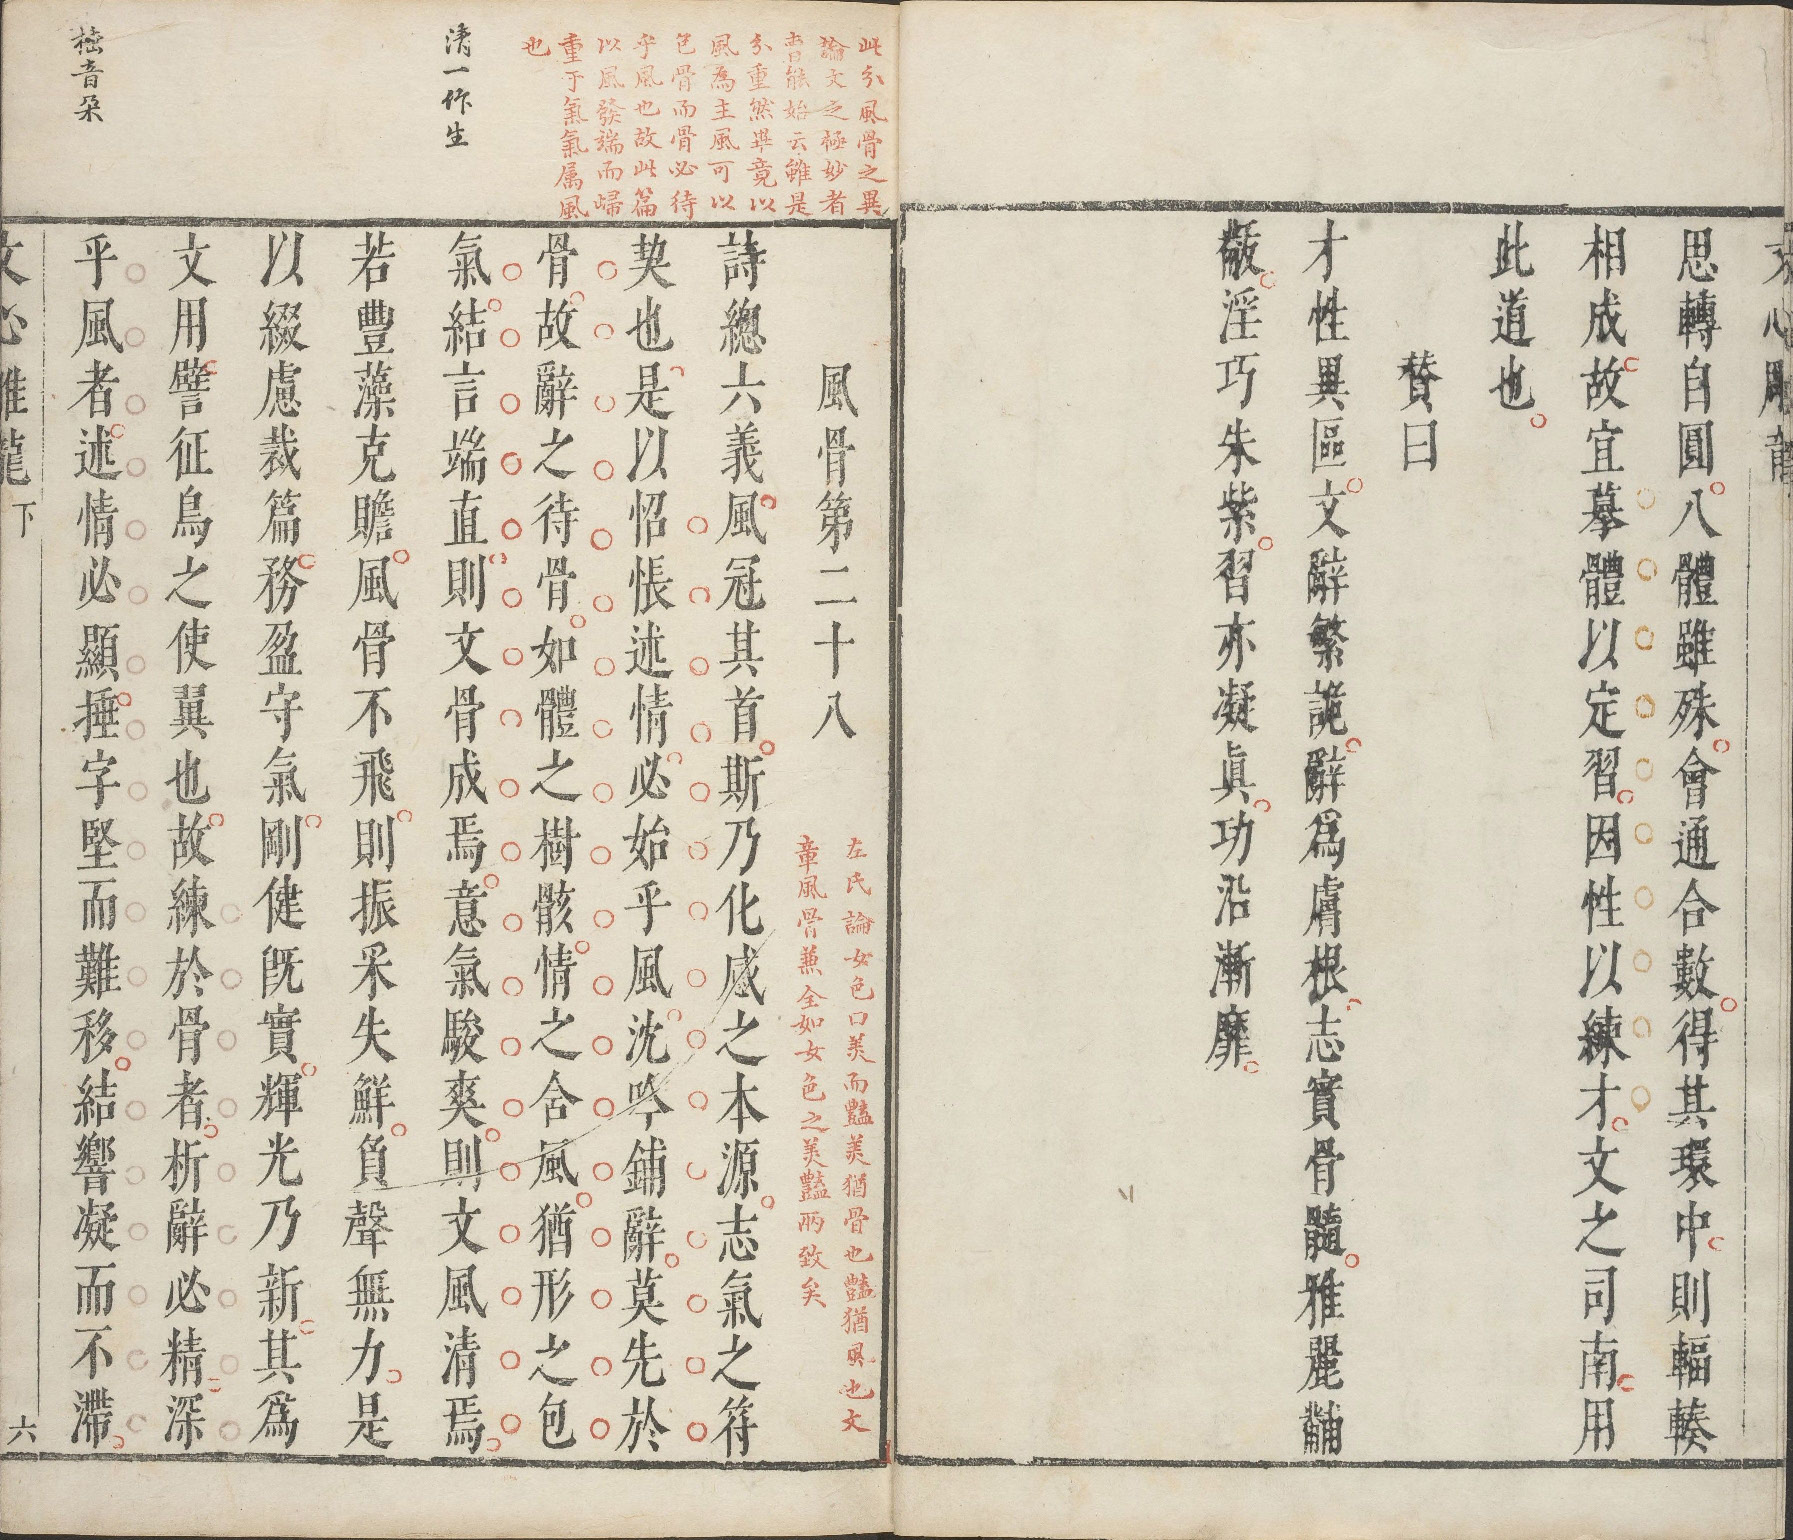 文心雕龍
思轉自圓八體雖殊會通合數得其環中則輻輳
相成故宜摹體以定習因性以練才文之司南用
此道也
贊曰
才性異區文辭繁詭辭爲膚根志實骨髓雅麗黼
黻淫巧朱紫習亦凝眞功沿漸靡
此分風骨之異
論文之極妙者
曹能始云雖是
分重然畢竟以
風為主風可以
包骨而骨必待
乎風也故此篇
以風發端而歸
重于氣氣属風
也
清一作生
捶音朶
風骨第二十八
左氏論女色曰美而豔美猶骨也豔猶風也文
章風骨兼全如女色之美豔兩致矣
詩總六義風冠其首斯乃化感之本源志氣之符
契也是以怊悵述情必始乎風沈吟鋪辭莫先於
骨故辭之待骨如體之樹骸情之含風猶形之包
氣結言端直則文骨成焉意氣駿爽則文風清焉
若豐藻克贍風骨不飛則振采失鮮負聲無力是
以綴慮裁篇務盈守氣剛健旣實輝光乃新其爲
文用譬征鳥之使翼也故練於骨者析辭必精深
乎風者述情必顯捶字堅而難移結響凝而不滯
文心雕龍 下 六